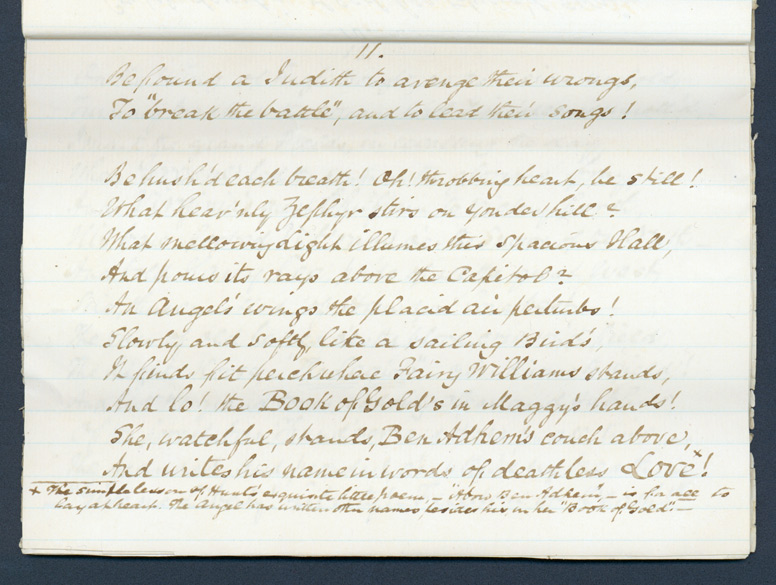 11.
Be found a Judith to avenge their wrongs,
To "break the battle", and to lead their songs!
Be hush'd each breath! Oh! throbbing heart, be still!
What heav'nly Zephyr stirs on yonder hill?
What mellowing light illumes this spacious Hall,
And pours its rays above the Capitol?
An Angel's wings the placid air perturbs!
Slowly and softly, like a sailing Bird's,
It finds fit perch where Fairy Williams stands,
And lo! the Book of Gold's in Maggy's hands!
She, watchful, stands, Ben Adhem's couch above,
And writes his name in words of deathless Love x!
x The simple lesson of Hunt's exquisite little poem, — "Abou Ben Adhem", — is for all to
lay at heart. The Angel has written other names besides his in her "Book of Gold" —